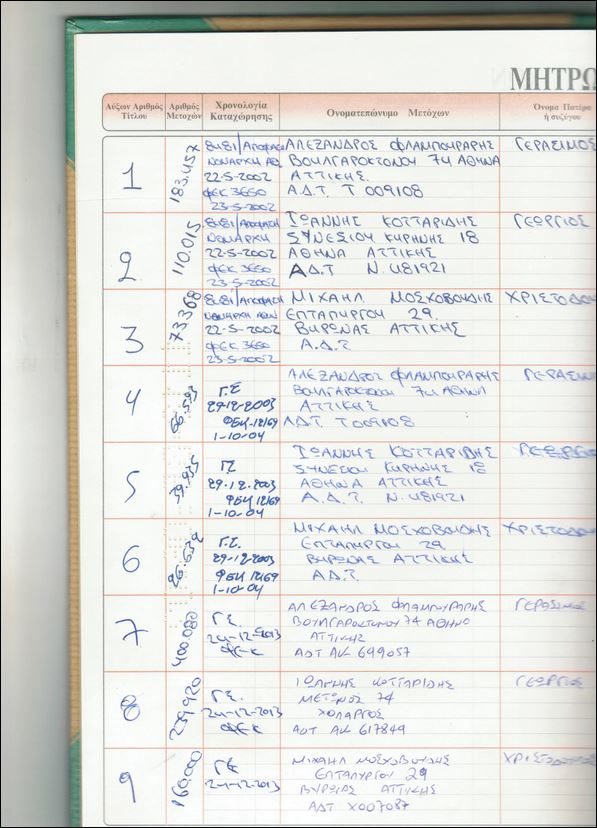 ΜΗΤΡΩ
Αύξων Αριθμός Τίτλου
Αριθμός Μετοχών
Χρονολογία Καταχώρησης
Ονοματεπώνυμο Μετόχων
Όνομα Πατέρα ή συζύγου
1
183.457
8481/ΑΠΟΦΑΣΗ
ΝΟΜΑΡΧΗ ΑΘ
22-5-2002
ΦΕΚ 3650
23-5-2002
ΑΛΕΞΑΝΔΡΟΣ ΦΛΑΜΠΟΥΡΑΡΗΣ
ΒΟΥΛΓΑΡΟΚΤΟΝΟΥ 74 ΑΘΗΝΑ
ΑΤΤΙΚΗΣ.
Α.Δ.Τ. Τ 009108
ΓΕΡΑΣΙΜΟΣ
2
110.015
8481/ΑΠΟΦΑΣΗ
ΝΟΜΑΡΧΗ
22-5-2002
ΦΕΚ 3650
23-5-2002
ΙΩΑΝΝΗΣ ΚΟΤΤΑΡΙΔΗΣ
ΣΥΝΕΣΙΟΥ ΚΥΡΗΝΗΣ 18
ΑΘΗΝΑ ΑΤΤΙΚΗΣ
Α.Δ.Τ Ν. 481921
ΓΕΩΡΓΙΟΣ
3
73.368
8481/ΑΠΟΦΑΣΗ
ΝΟΜΑΡΧΗ ΑΘΗΝ
22-5-2002
ΦΕΚ 3650
23-5-2002
ΜΙΧΑΗΛ ΜΟΣΧΟΒΟΥΔΗΣ
ΕΠΤΑΠΥΡΓΟΥ 29.
ΒΥΡΩΝΑΣ ΑΤΤΙΚΗΣ
Α.Δ.Τ.
ΧΡΙΣΤΟΔΟΥ
4
66.593
Γ.Σ
29-12-2003
ΦΕΚ 12169
1-10-04
ΑΛΕΞΑΝΔΡΟΣ ΦΛΑΜΠΟΥΡΑΡΗΣ
ΒΟΥΛΓΑΡΟΚΤΟΝΟΥ 74 ΑΘΗΝΑ
ΑΤΤΙΚΗΣ
Α.Δ.Τ. Τ009108
ΓΕΡΑΣΙΜ
5
39.935
ΓΣ
29.12.2003
ΦΕΚ 12169
1-10-04
ΙΩΑΝΝΗΣ ΚΟΤΤΑΡΙΔΗΣ
ΣΥΝΕΣΙΟΥ ΚΥΡΗΝΗΣ 18
ΑΘΗΝΑ ΑΤΤΙΚΗΣ
Α.Δ.Τ. Ν. 481921
ΓΕΩΡΓΙΟΣ
6
26.632
Γ.Σ.
29-12-2003
ΦΕΚ 12169
1-10-04
ΜΙΧΑΗΛ ΜΟΣΧΟΒΟΥΔΗΣ
ΕΠΤΑΠΥΡΓΟΥ 29
ΒΥΡΩΝΑΣ ΑΤΤΙΚΗΣ
Α.Δ.Τ.
ΧΡΙΣΤΟΔΟΥ
7
400.080
Γ.Σ.
24-12-2013
ΑΛΕΞΑΝΔΡΟΣ ΦΛΑΜΠΟΥΡΑΡΗΣ
ΒΟΥΛΓΑΡΟΚΤΟΝΟΥ 74 ΑΘΗΝΑ
ΑΤΤΙΚΗΣ
ΑΔΤ ΑΚ 699057
ΓΕΡΑΣΙΜΟΣ
8
239.920
Γ.Σ.
24-12-2013
ΙΩΑΝΝΗΣ ΚΟΤΤΑΡΙΔΗΣ
ΜΕΤΩΝΟΣ 74
ΧΟΛΑΡΓΟΣ
ΑΔΤ ΑΚ 617844
ΓΕΩΡΓΙΟΣ
9
160.000
ΓΣ
24-12-2013
ΜΙΧΑΗΛ ΜΟΣΧΟΒΟΥΔΗΣ
ΕΠΤΑΠΥΡΓΟΥ 29
ΒΥΡΩΝΑΣ ΑΤΤΙΚΗΣ
ΑΔΤ Χ007087